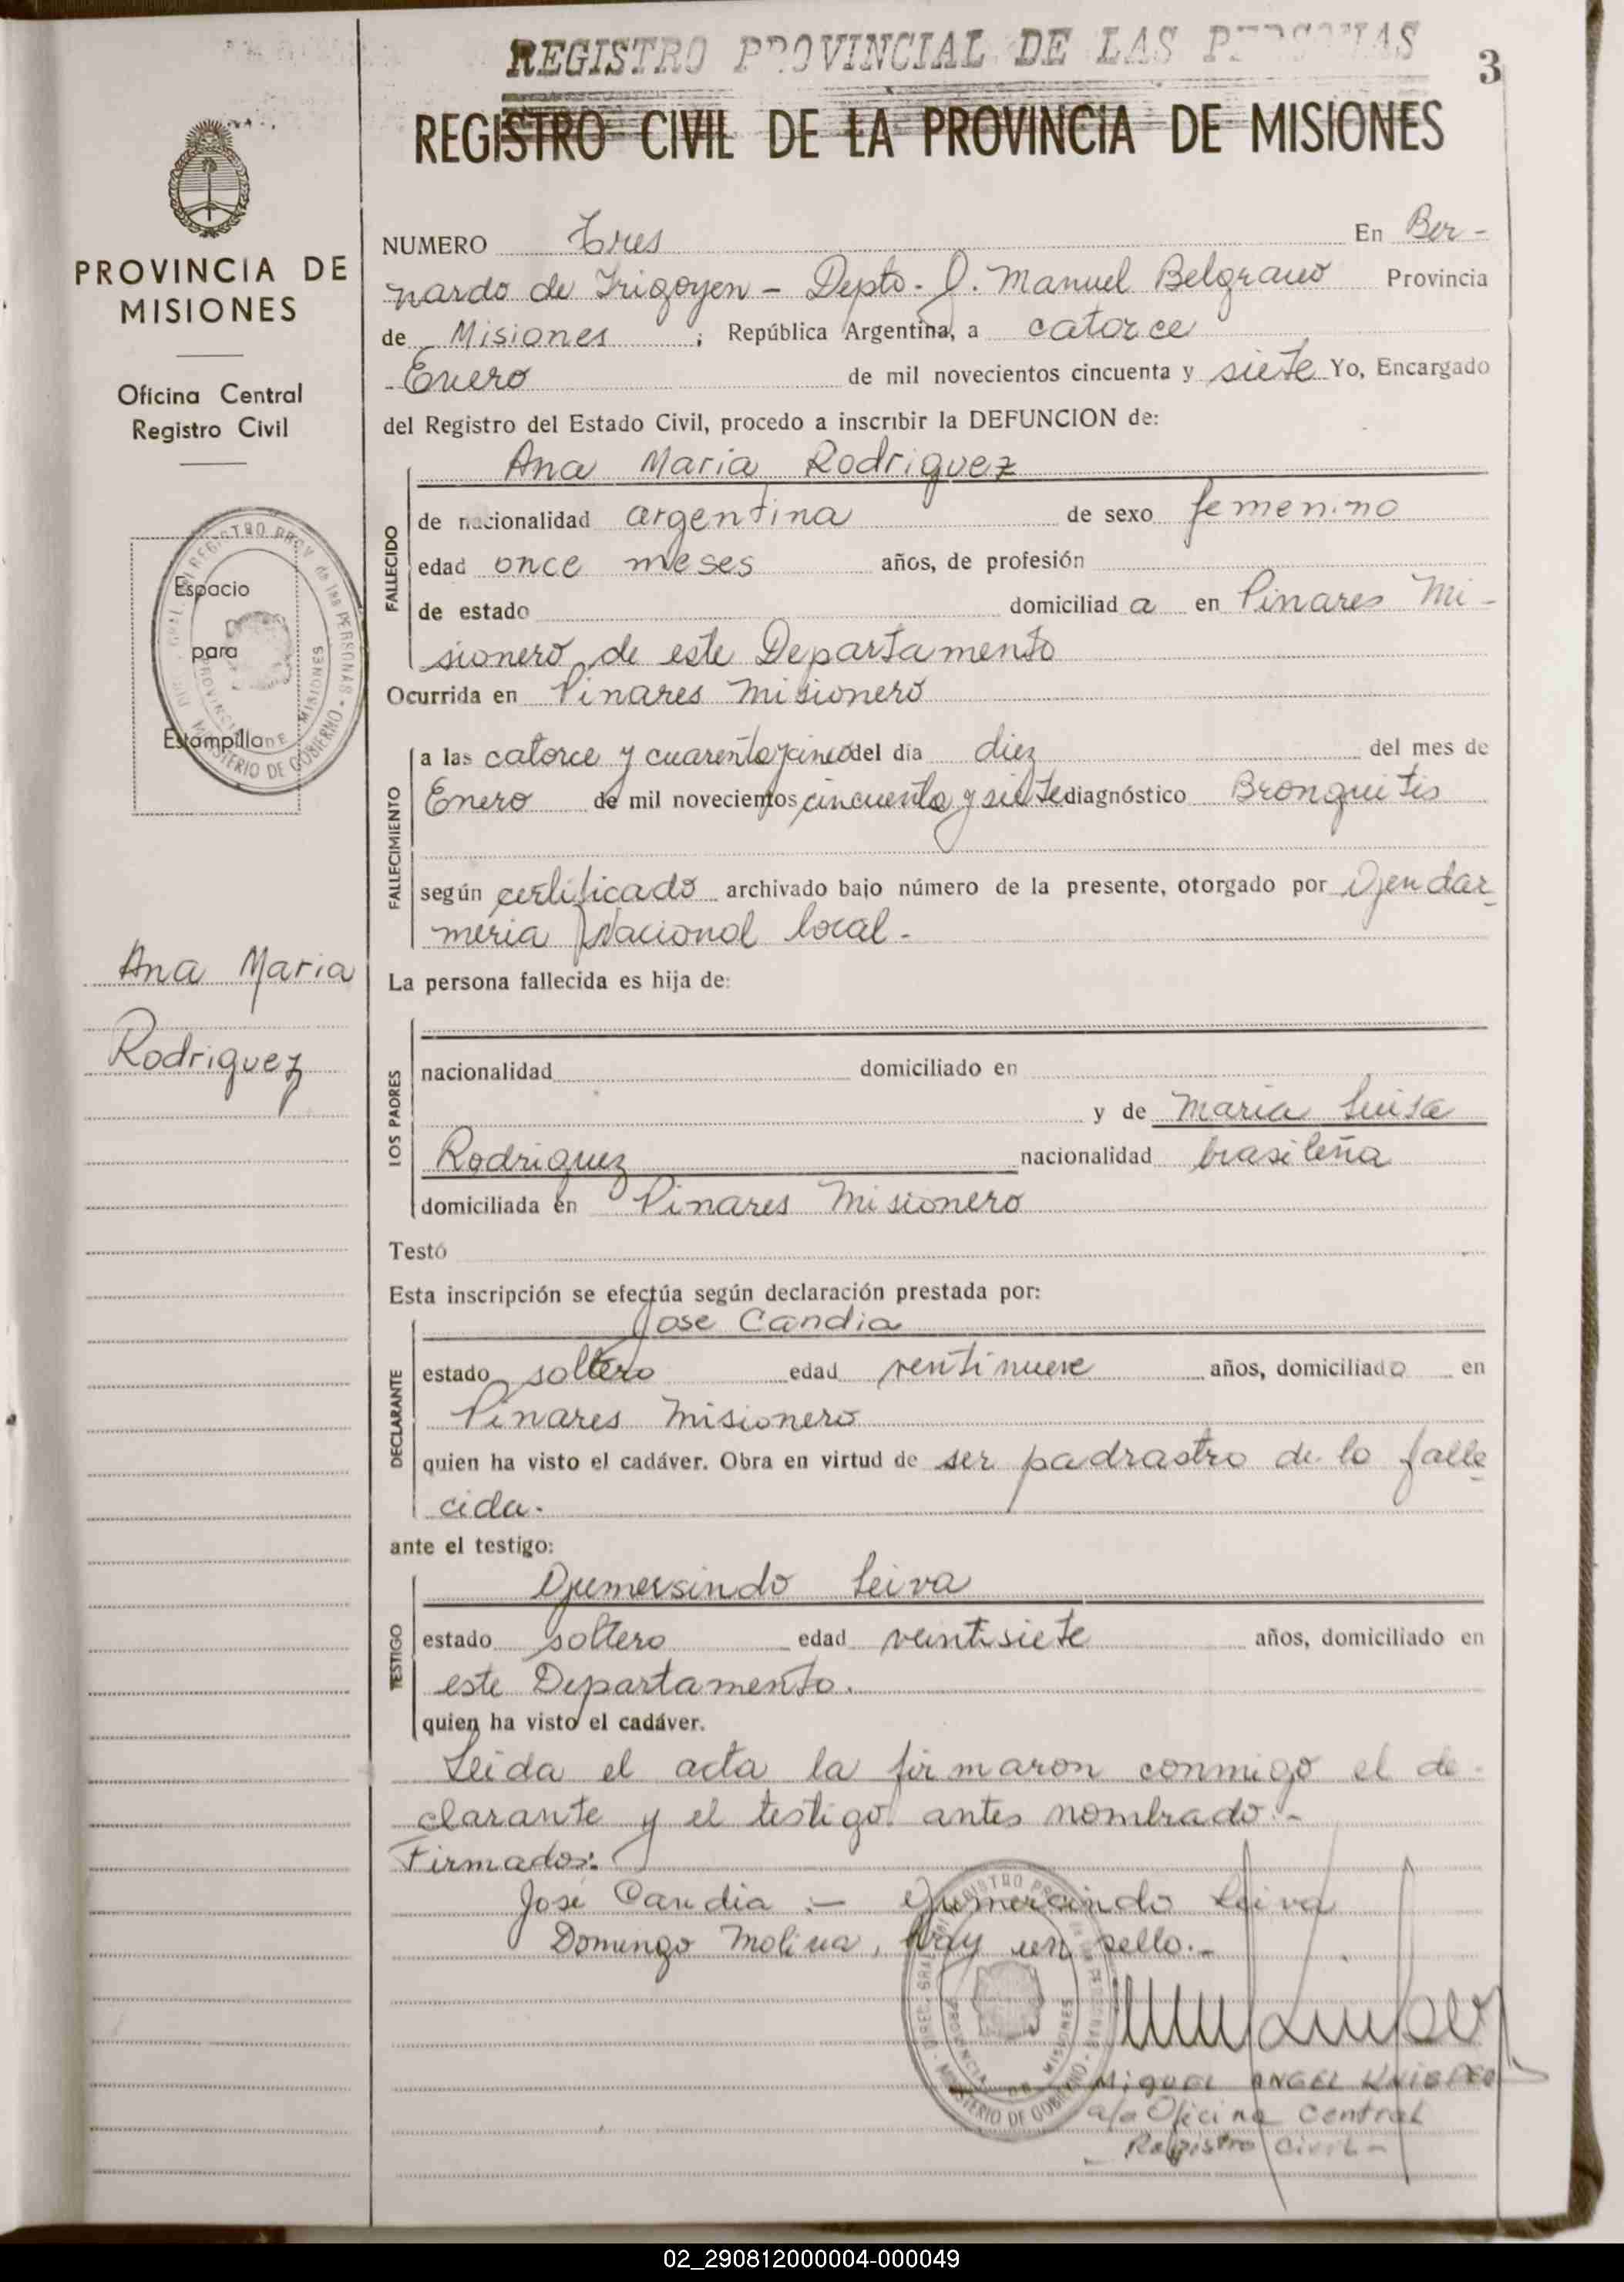 REGISTRO PROVINCIAL DE LAS PERSONAS
3
REGISTRO CIVIL DE LA PROVINCIA DE MISIONES
PROVINCIA DE
MISIONES
Oficina Central
Registro Civil
Espacio
para
Estampilla
Ana Maria
Rodriguez
NUMERO Tres En Ber-
nardo de Irigoyen - Depto. J. Manuel Belgrano Provincia
de Misiones ; República Argentina, a catorce
Enero de mil novecientos cincuenta y siete Yo, Encargado
del Registro del Estado Civil, procedo a inscribir la DEFUNCION de:
Ana Maria Rodriguez
FALLECIDO
de nacionalidad argentina de sexo femenino
edad once meses años, de profesión
de estado domiciliad a en Pinares Mi-
sionero de este Departamento
Ocurrida en Pinares Misionero
FALLECIMIENTO
a las catorce y cuarenta y cinco del día diez del mes de
Enero de mil novecientos cincuenta y siete diagnóstico Bronquitis
según certificado archivado bajo número de la presente, otorgado por Gendar-
meria Nacional local.-
La persona fallecida es hija de:
LOS PADRES
nacionalidad domiciliado en
y de Maria Luisa
Rodriguez nacionalidad brasileña
domiciliada en Pinares Misionero
Testó
Esta inscripción se efectúa según declaración prestada por:
Jose Candia
DECLARANTE
estado soltero edad ventinueve años, domiciliado en
Pinares Misionero
quien ha visto el cadáver. Obra en virtud de ser padrastro de la falle-
cida.-
ante el testigo:
Gumersindo Leiva
TESTIGO
estado soltero edad veintisiete años, domiciliado en
este Departamento.
quien ha visto el cadáver.
Leida el acta la firmaron conmigo el de-
clarante y el testigo antes nombrado.-
Firmados:
José Candia :- Gumersindo Leiva
Domingo Molina, Hay un sello.-
MIGUEL ANGEL
a/c Oficina Central
Registro Civil-
02_290812000004-000049